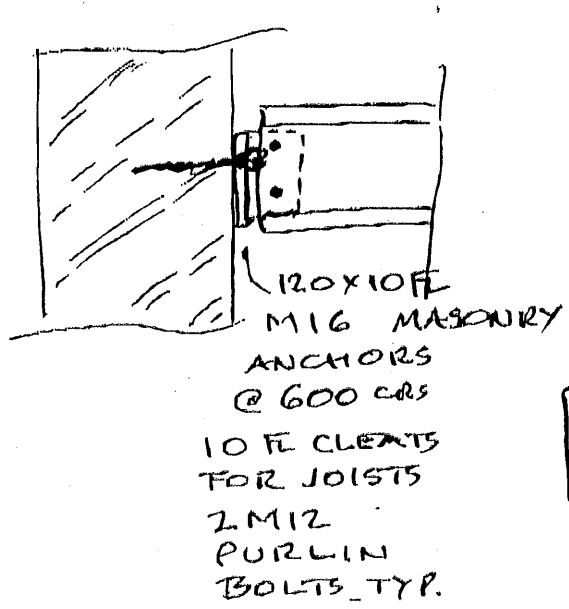 120X10FL
M16 MASONRY
ANCHORS
@ 600 CRS
10 FL CLEATS
FOR JOISTS
2M12
PURLIN
BOLTS TYP.